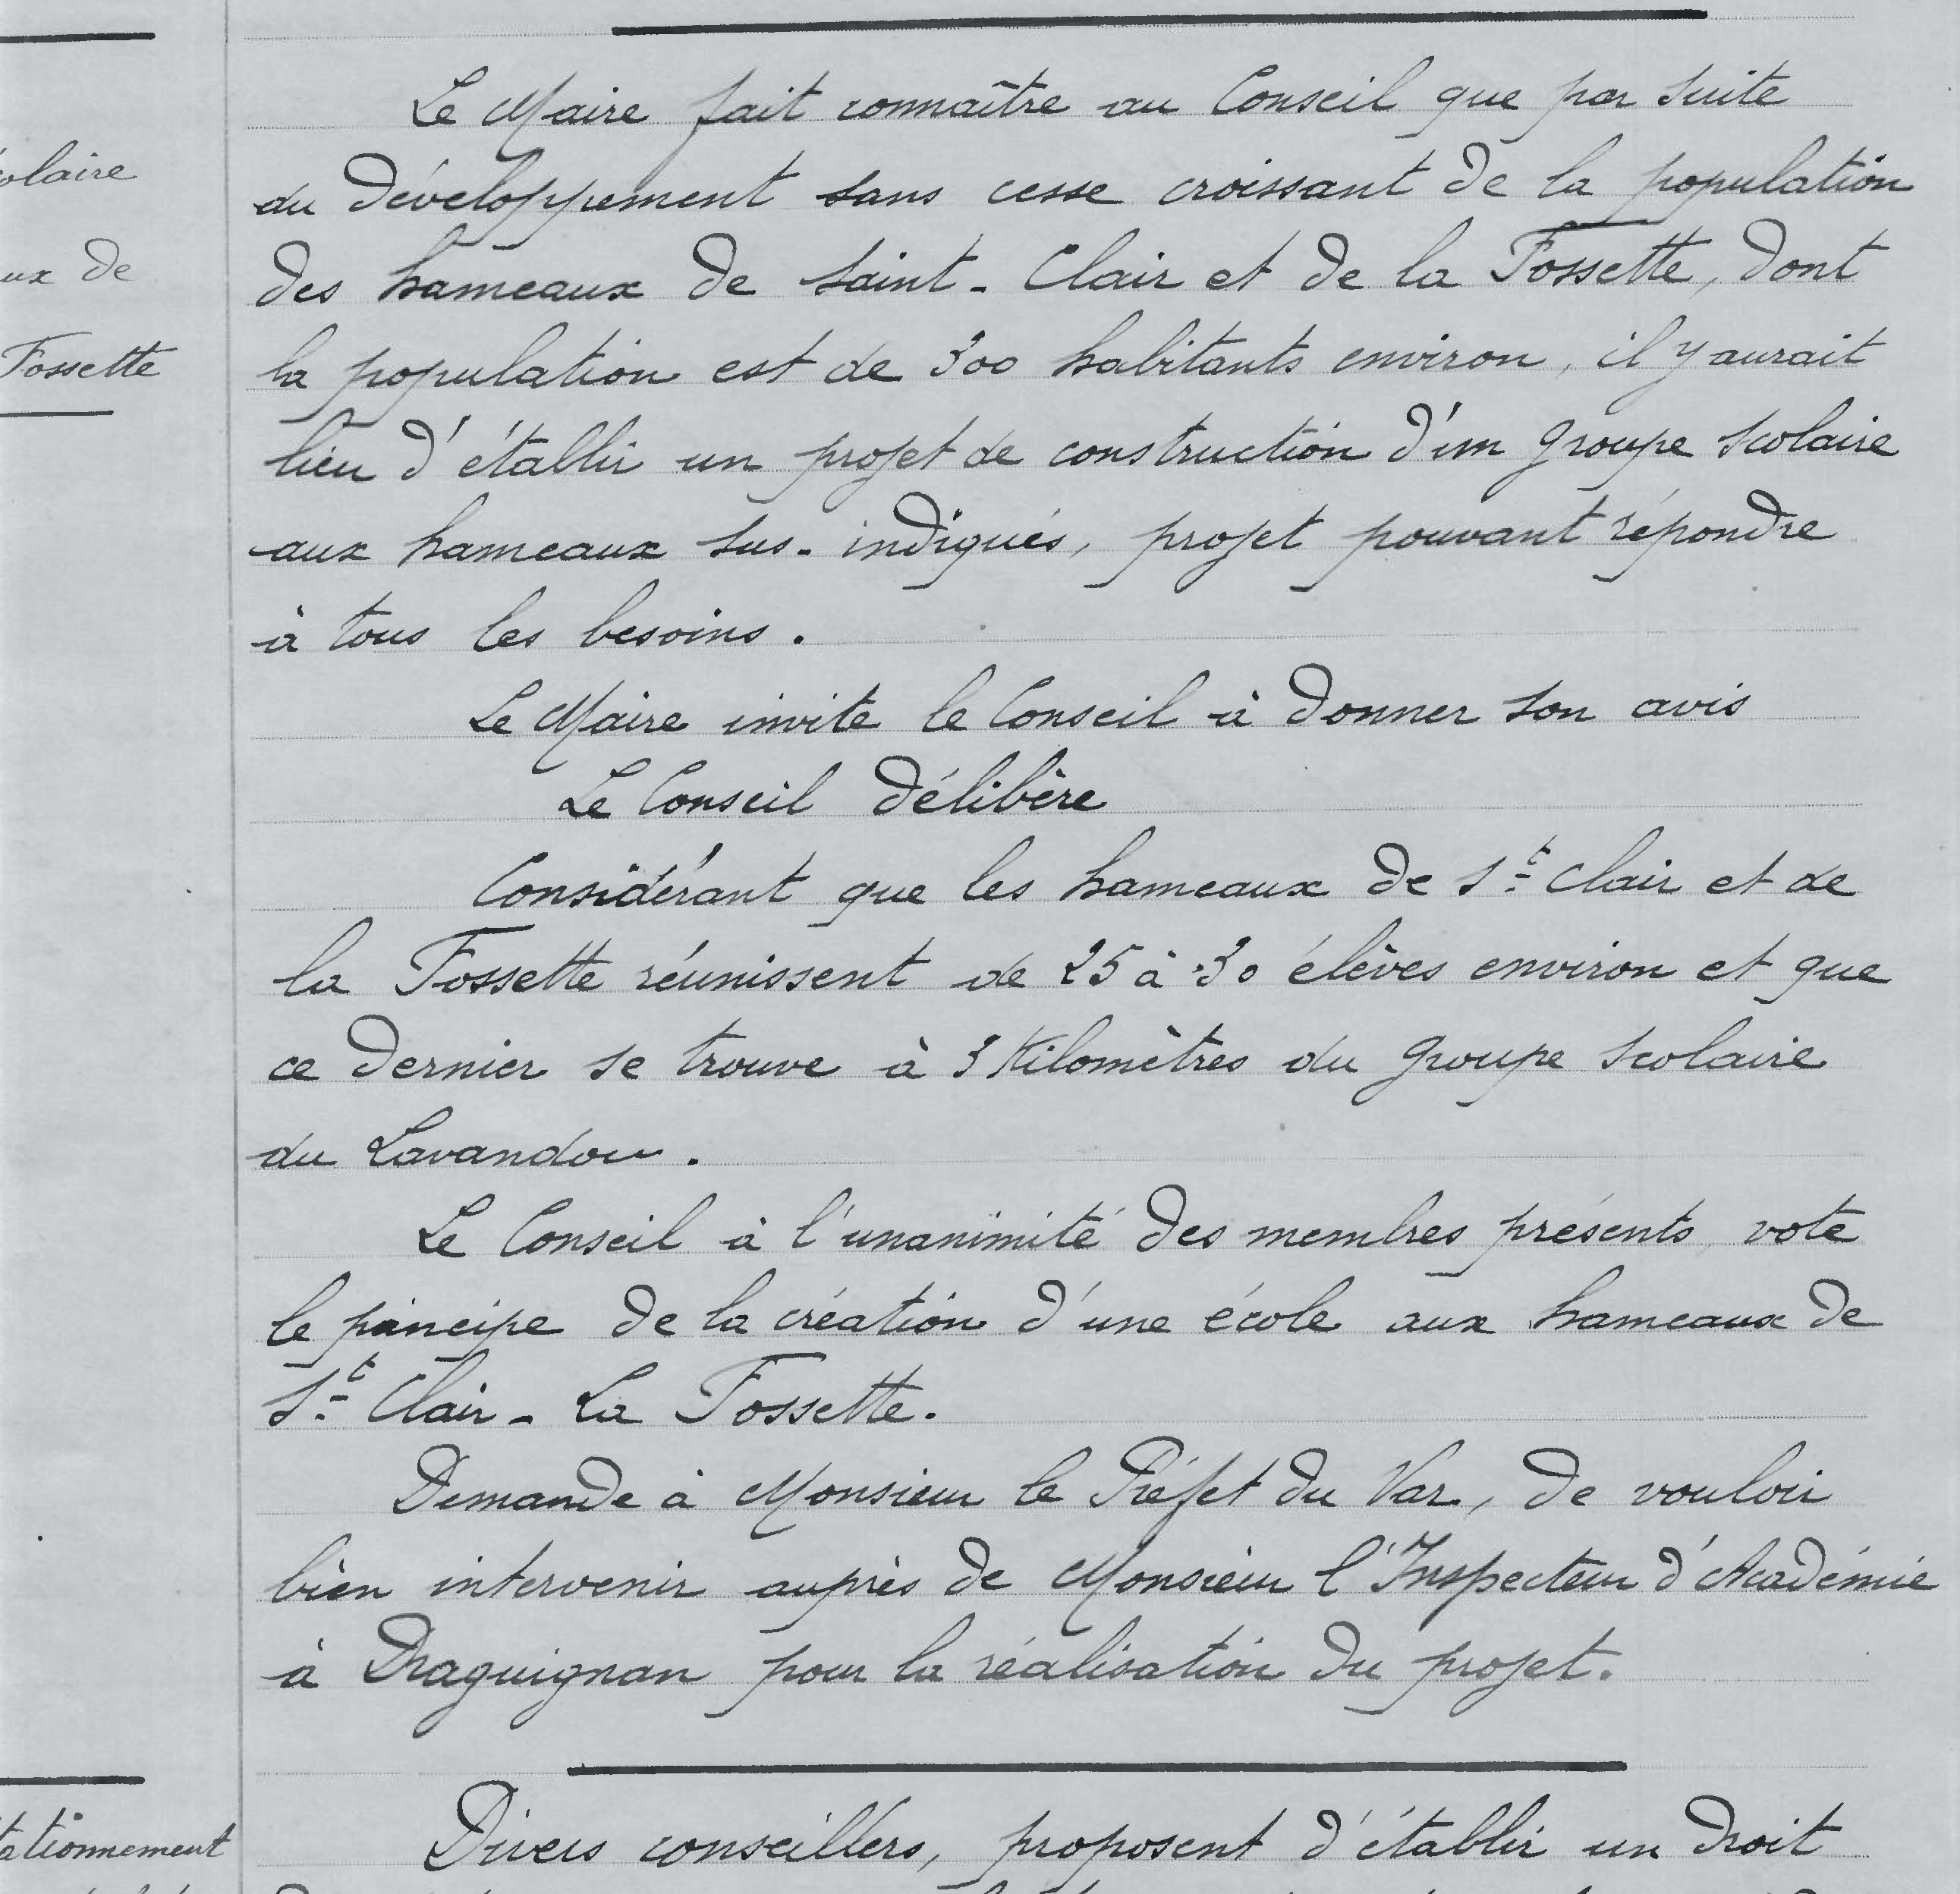 olaire
ux de
Fossette
Le Maire fait connaître au Conseil que par suite
du développement sans cesse croissant de la population
des hameaux de Saint-Clair et de la Fossette, dont
la population est de 300 habitants environ, il y aurait
lieu d'établir un projet de construction d'un groupe scolaire
aux hameaux sus-indiqués, projet pouvant répondre
à tous les besoins.
Le Maire invite le Conseil à donner son avis
Le Conseil délibère
Considérant que les hameaux de St Clair et de
la Fossette réunissent de 25 à 30 élèves environ et que
ce dernier se trouve à 3 Kilomètres du groupe scolaire
du Lavandou.
Le Conseil à l'unanimité des membres présents, vote
le principe de la création d'une école aux hameaux de
St Clair - La Fossette.
Demande à Monsieur le Préfet du Var, de vouloir
bien intervenir auprès de Monsieur l'Inspecteur d'Académie
à Draguignan pour la réalisation du projet.
tationnement
Divers conseillers, proposent d'établir un droit